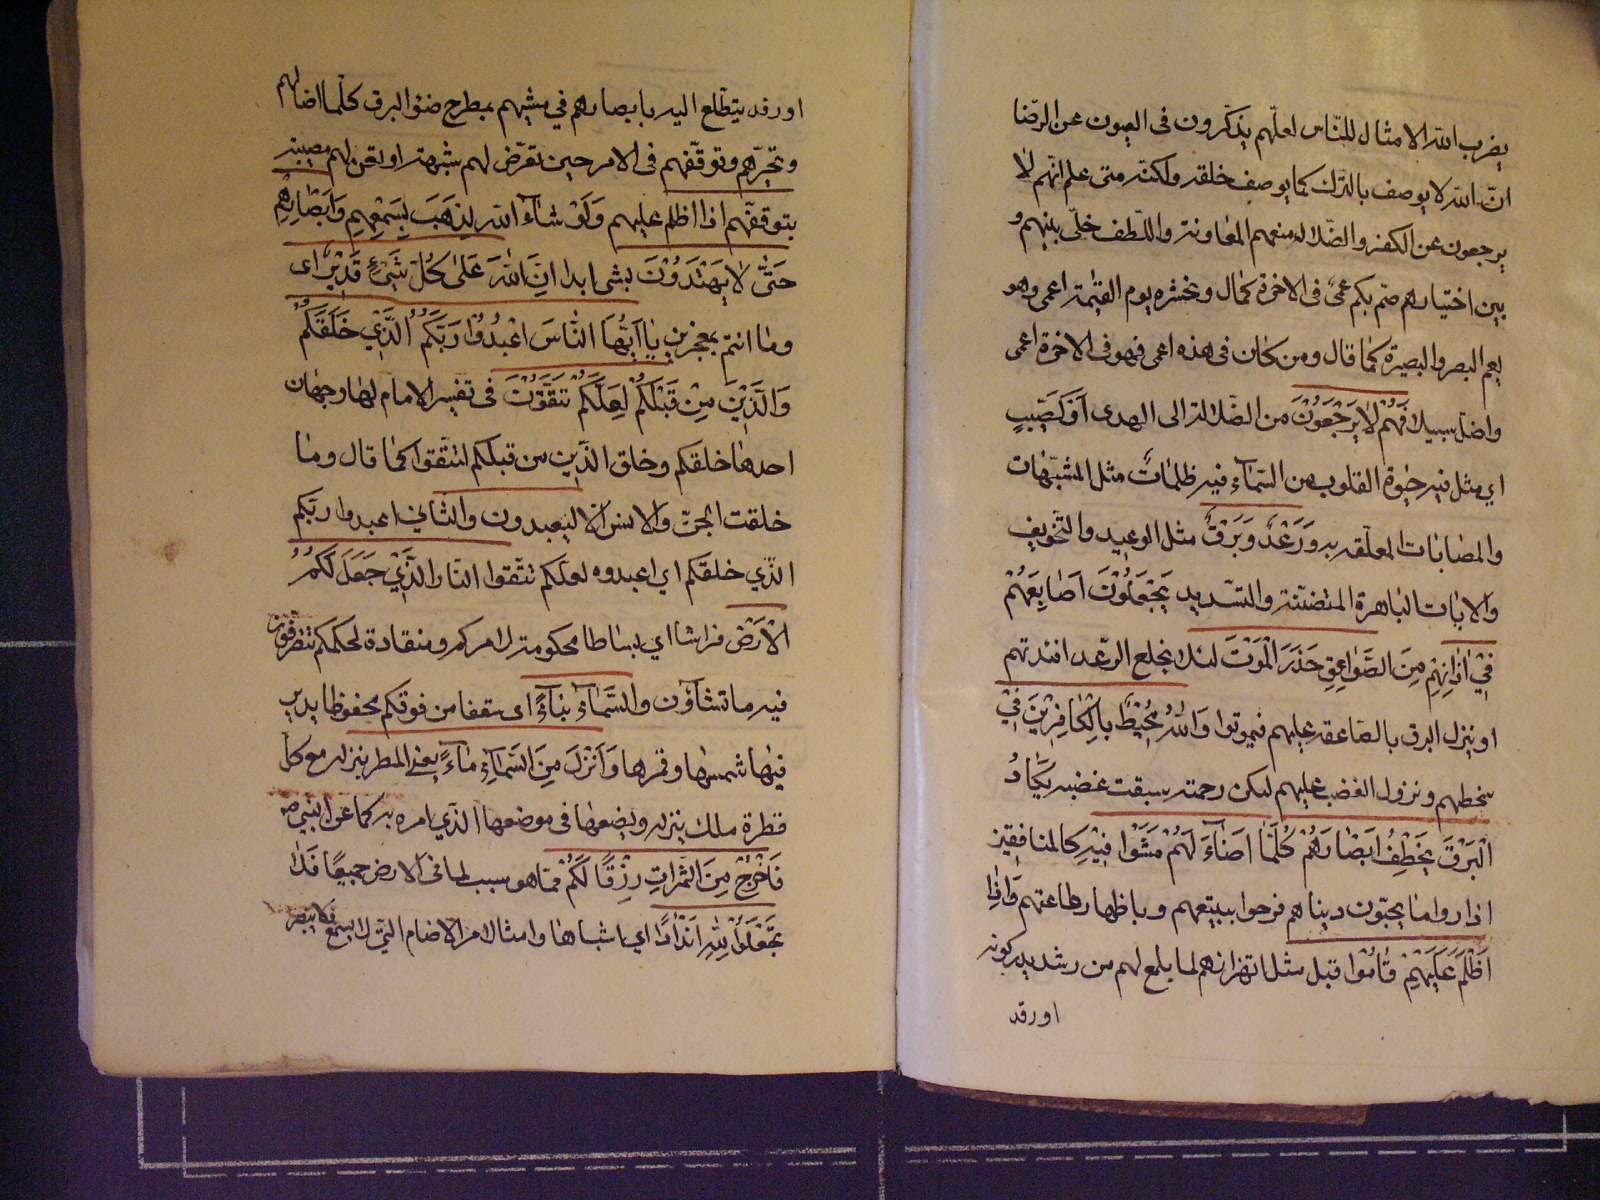 يضرب الله الامثال للناس لعلهم يتذكرون فى العيون عن الرضا
ان الله لا يوصف بالترك كما يوصف خلقه ولكنه متى علم انهم لا
يرجعون عن الكفر والضلالة منعهم المعاونة واللطف وخلى بينهم و
بين اختيارهم صم بكم عمى فى الاخرة كما قال ونحشره يوم القيمة اعمى وهو
يعم البصر والبصيرة كما قال ومن كان فى هذه اعمى فهو فى الاخرة اعمى
واضل سبيلا فَهُمْ لا يَرْجِعُونَ من الضلالة الى الهدى اَوْ كَصَيِّبٍ
اي مثل فيه حيوة القلوب من السَّمَاءِ فيه ظلمات مثل المشبهات
والمصابات المعلقة به وَرَعْدٌ وَبَرْقٌ مثل الوعيد والتخويف
والايات الباهرة المتضمنة والتسديد يَجْعَلُونَ اَصَابِعَهُمْ
فِي اٰذَانِهِمْ مِنَ الصَّوَاعِقِ حَذَرَ الْمَوْتِ لئلا يخلع الرعد افئدتهم
او ينزل البرق بالصاعقة عليهم فيموتوا وَاللهُ مُحِيطٌ بِالْكَافِرِينَ فِي
سخطهم ونزول الغضب عليهم لكن رحمته سبقت غضبه يَكَادُ
الْبَرْقُ يَخْطِفُ اَبْصَارَهُمْ كُلَّمَا اَضَاءَ لَهُمْ مَشَوْا فِيهِ كالمنافقين
اذا راوا ما يحبون دينا هم فرحوا ببيعتهم وباظهار طاعتهم وَاِذَا
اَظْلَمَ عَلَيْهِمْ قَامُوا قيل مثل اتهزازهم لما يلمع لهم من رشد يدركونه
او رفد
او رفد يتطلع اليه بابصارهم في مشيهم بمطرح ضوء البرق كلما اضالهم
وتحيرهم وتوقفهم فى الامر حين تعرض لهم شبهة او تعن لهم مصيبة
بتوقفهم اذا اظلم عليهم وَلَوْ شَاءَ اللهُ لَذَهَبَ بِسَمْعِهِمِ وَاَبْصَارِهِمْ
حَتّٰى لا يَهْتَدُوْنَ بشى ابدا اِنَّ اللهَ عَلٰى كُلِّ شَيْءٍ قَدِيرٌ اى
وما انتم بمعجزين يَا اَيُّهَا النَّاسُ اعْبُدُوْا رَبَّكُمُ الَّذِي خَلَقَكُمْ
وَالَّذِينَ مِنْ قَبْلِكُمْ لَعَلَّكُمْ تَتَّقُوْنَ فى تفسير الامام لها وجهان
احدها خلقكم وخلق الذين من قبلكم لتتقوا كما قال وما
خلقت الجن والانس الا ليعبدون والثاني اعبدوا ربكم
الذي خلقكم اي اعبدوه لعلكم تتقوا النار الَّذِي جَعَلَ لَكُمُ
الْاَرْضَ فراشا اي بساطا محكومة لامركم ومنقادة لحكمكم تتصرفون
فيه ما تشاؤن والسَّمَاءَ بِنَاءً اى سقفا من فوقكم محفوظا يدير
فيها شمسها وقمرها وَاَنْزَلَ مِنَ السَّمَاءِ مَاءً يعنى المطر ينزله مع كل
قطرة ملك ينزله ويضعها فى موضعها الذي امره به كما عن النبى ص
فَاَخْرَجَ مِنَ الثَّمَرَاتِ رِزْقًا لَكُمْ مما هو سبب لما فى الارض جميعًا فَلَا
تَجْعَلُوا لِلهِ اَنْدَادًا اي اشباها وامثالا من الاصنام التى لا يسمع ولا يبصر